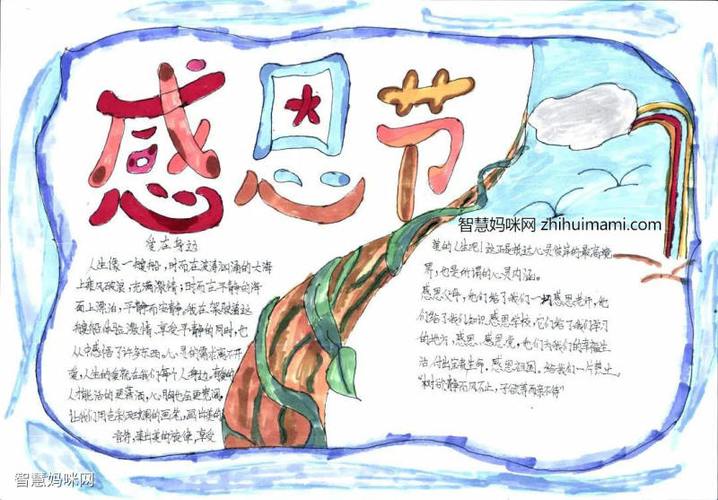 感恩节
智慧妈咪网 zhihuimami.com
爱在身边
人生像一艘船，时而在波涛汹涌的大海
上乘风破浪，充满激情；时而在平静的海
面上漂泊，平静而安静。我在驾驶着这
艘船体验激情、享受平静的同时，也
从中感悟了许多东西。心灵的需求离不开
爱，人生的爱花在我们每个人身边，有爱的
人才能活的更灵活，心胸也会更宽阔。
让我们用色彩斑斓的画笔，画出美的
音符，奏出美的旋律，享受
美的人生吧！这正是抵达心灵彼岸的最高境
界，也是所谓的心灵内涵。
感恩父母，他们给了我们一切感恩老师，他
们给了我们知识。感恩学校，它们给了我们学习
的地方，感恩。感恩党，他们为我们的幸福生
活付出宝贵生命。感恩祖国，给我们一片热土。
"树欲静而风不止，子欲养而亲不待"
智慧妈咪网